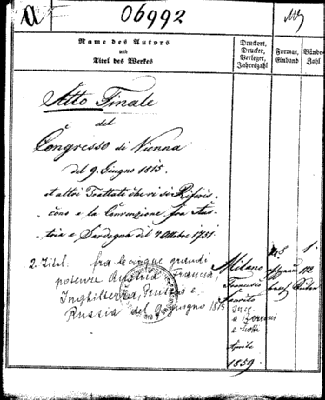 a
06992
Name des Autors
und
Titel des Werkes
Druckort,
Drucker,
Verleger,
Jahreszahl
Format,
Einband
Bände
Zahl
Atto Finale
del
Congresso di Vienna
del 9. Giugno 1815
ed altri Trattati che vi si Riferis-
cono e la Convenzione fra Aus-
tria e Sardegna del 4 Ottobre 1751.
2. Titel. fra le cinque grandi
potenze Austria Francia,
Inghilterra, Prussia e
Russia del 9 giugno 1815
Milano
Francesco
Sanvito
succ.
a
Aprile
1859.
8
1.